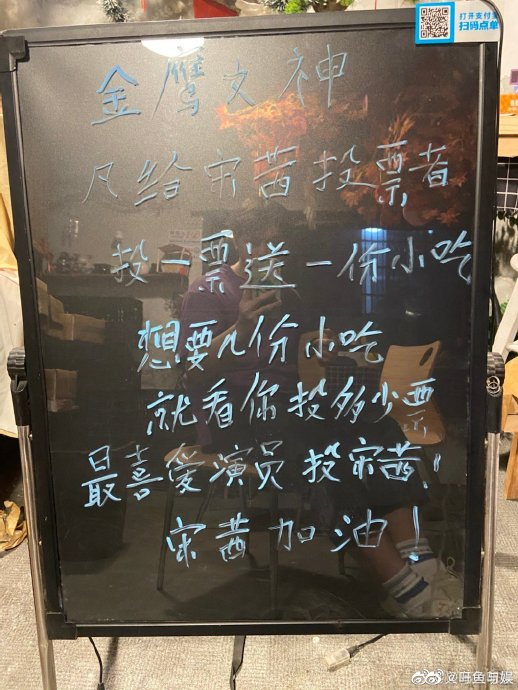 打开支付宝
扫码点单
金鹰女神
凡给宋茜投票者
投一票送一份小吃
想要几份小吃
就看你投多少票
最喜爱演员投宋茜！
宋茜加油！